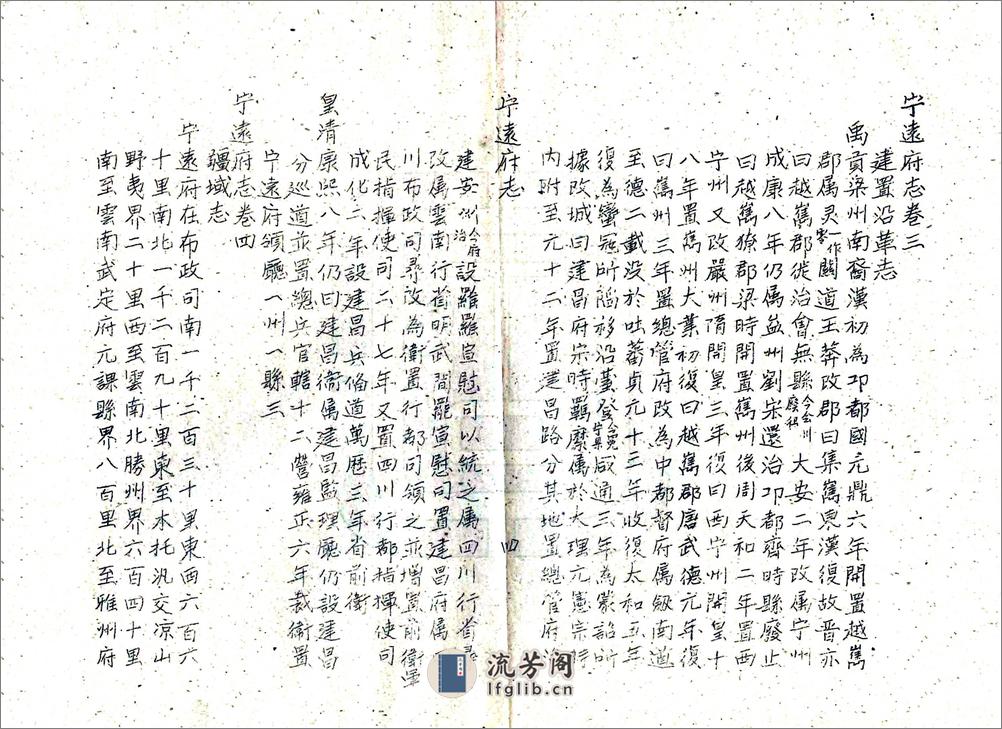 宁遠府志卷三
建置沿革志
禹貢梁州南裔漢初為邛都國元鼎六年開置越嶲
郡属灵一作零關道王莽改郡曰集嶲東漢復故晋亦
曰越嶲郡徙治會無縣今会川廢衛大安二年改属宁州
成康八年仍属益州劉宋還治邛都齊時縣廢止
曰越嶲獠郡梁時開置嶲州後周天和二年置西
宁州又改嚴州隋開皇三年復曰西宁州開皇十
八年置嶲州大業初復曰越嶲郡唐武德元年復
曰嶲州三年置總管府改為中都督府属劔南道
至德二載没於吐蕃貞元十三年收復太和五年
復為蠻冦所陷移治臺登今冕宁縣咸通三年為蒙詔所
據改城曰建昌府宋時羈縻属於大理元憲宗時
内附至元十二年置建昌路分其地置總管府
宁遠府志
四
建安州今府治設羅羅宣慰司以統之属四川行省尋
改属雲南行省明武間罷宣慰司置建昌府属四
川布政司尋改為衛置行都司領之並增置前衛軍
民指揮使司二十七年又置四川行都指揮使司
成化二年設建昌兵俻道萬厯三年省前衛
皇清康熙八年仍曰建昌衛属建昌監理廳仍設建昌
分廵道並置總兵官轄十二營雍正六年裁衛置
宁遠府領廳一州一縣三
宁遠府志卷四
疆域志
宁遠府在布政司南一千二百三十里東西六百六
十里南北一千二百九十里東至木托汛交凉山
野夷界二十里西至雲南北勝州界六百四十里
南至雲南武定府元謀縣界八百里北至雅州府
流芳阁
lfglib.cn